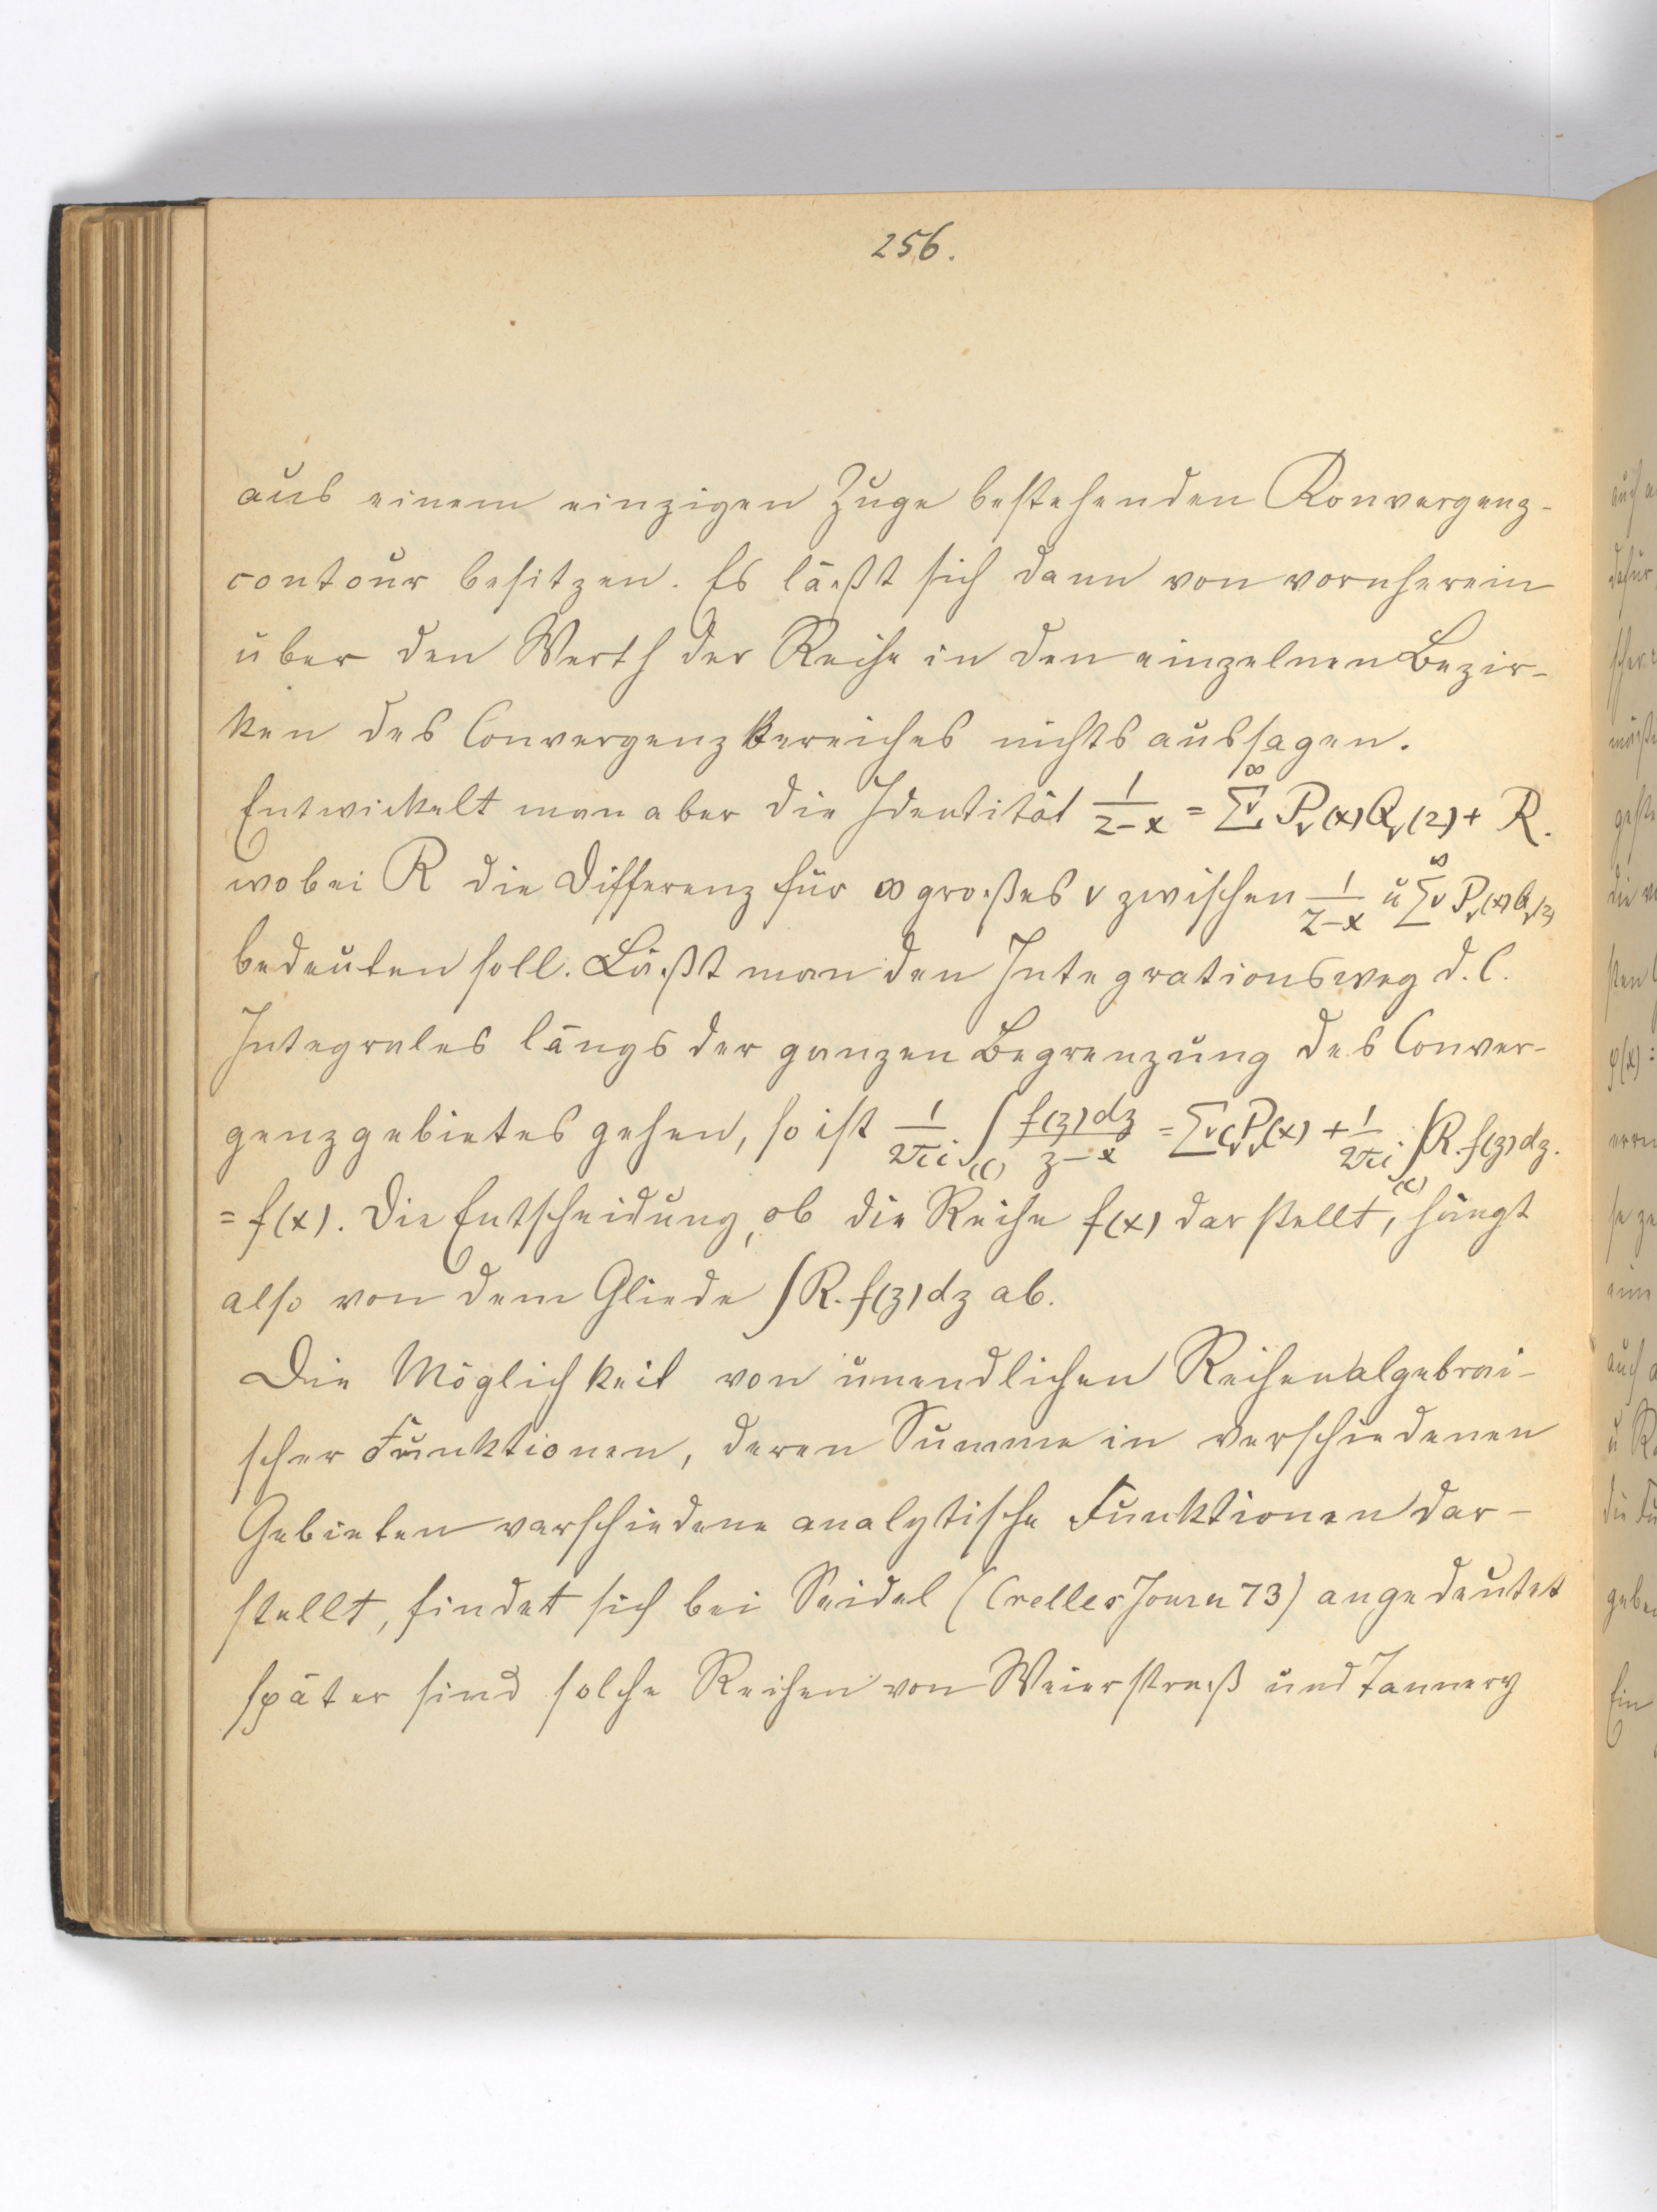 256.
aus einem einzigen Zuge bestehenden Konvergenz-
contour besitzen. Es läßt sich dann von vornherein
über den Werth der Reihe in den einzelnen Bezir-
ken des Convergenzbereiches nichts aussagen.
Entwickelt man aber die Identität 1/(z-x) = ∑ν^∞ Pν(x)Qν(z) + R.
wobei R die Differenz für ∞ großes ν zwischen 1/(z-x) u ∑ν^∞ Pν(x)Qν(z)
bedeuten soll. Läßt man den Integrationsweg d. C.
Integrales längs der ganzen Begrenzung des Conver-
genzgebietes gehen, so ist 1/(2πi) ∫(C) f(z)dz/(z-x) = ∑ν CνPν(x) + 1/(2πi) ∫(C) R.f(z)dz.
= f(x). Die Entscheidung, ob die Reihe f(x) darstellt, hängt
also von dem Gliede ∫R.f(z)dz ab.
Die Möglichkeit von unendlichen Reihen algebrai-
scher Funktionen, deren Summe in verschiedenen
Gebieten verschiedene analytische Funktionen dar-
stellt, findet sich bei Seidel (Crelles Journ 73) angedeutet
später sind solche Reihen von Weierstraß und Tannery